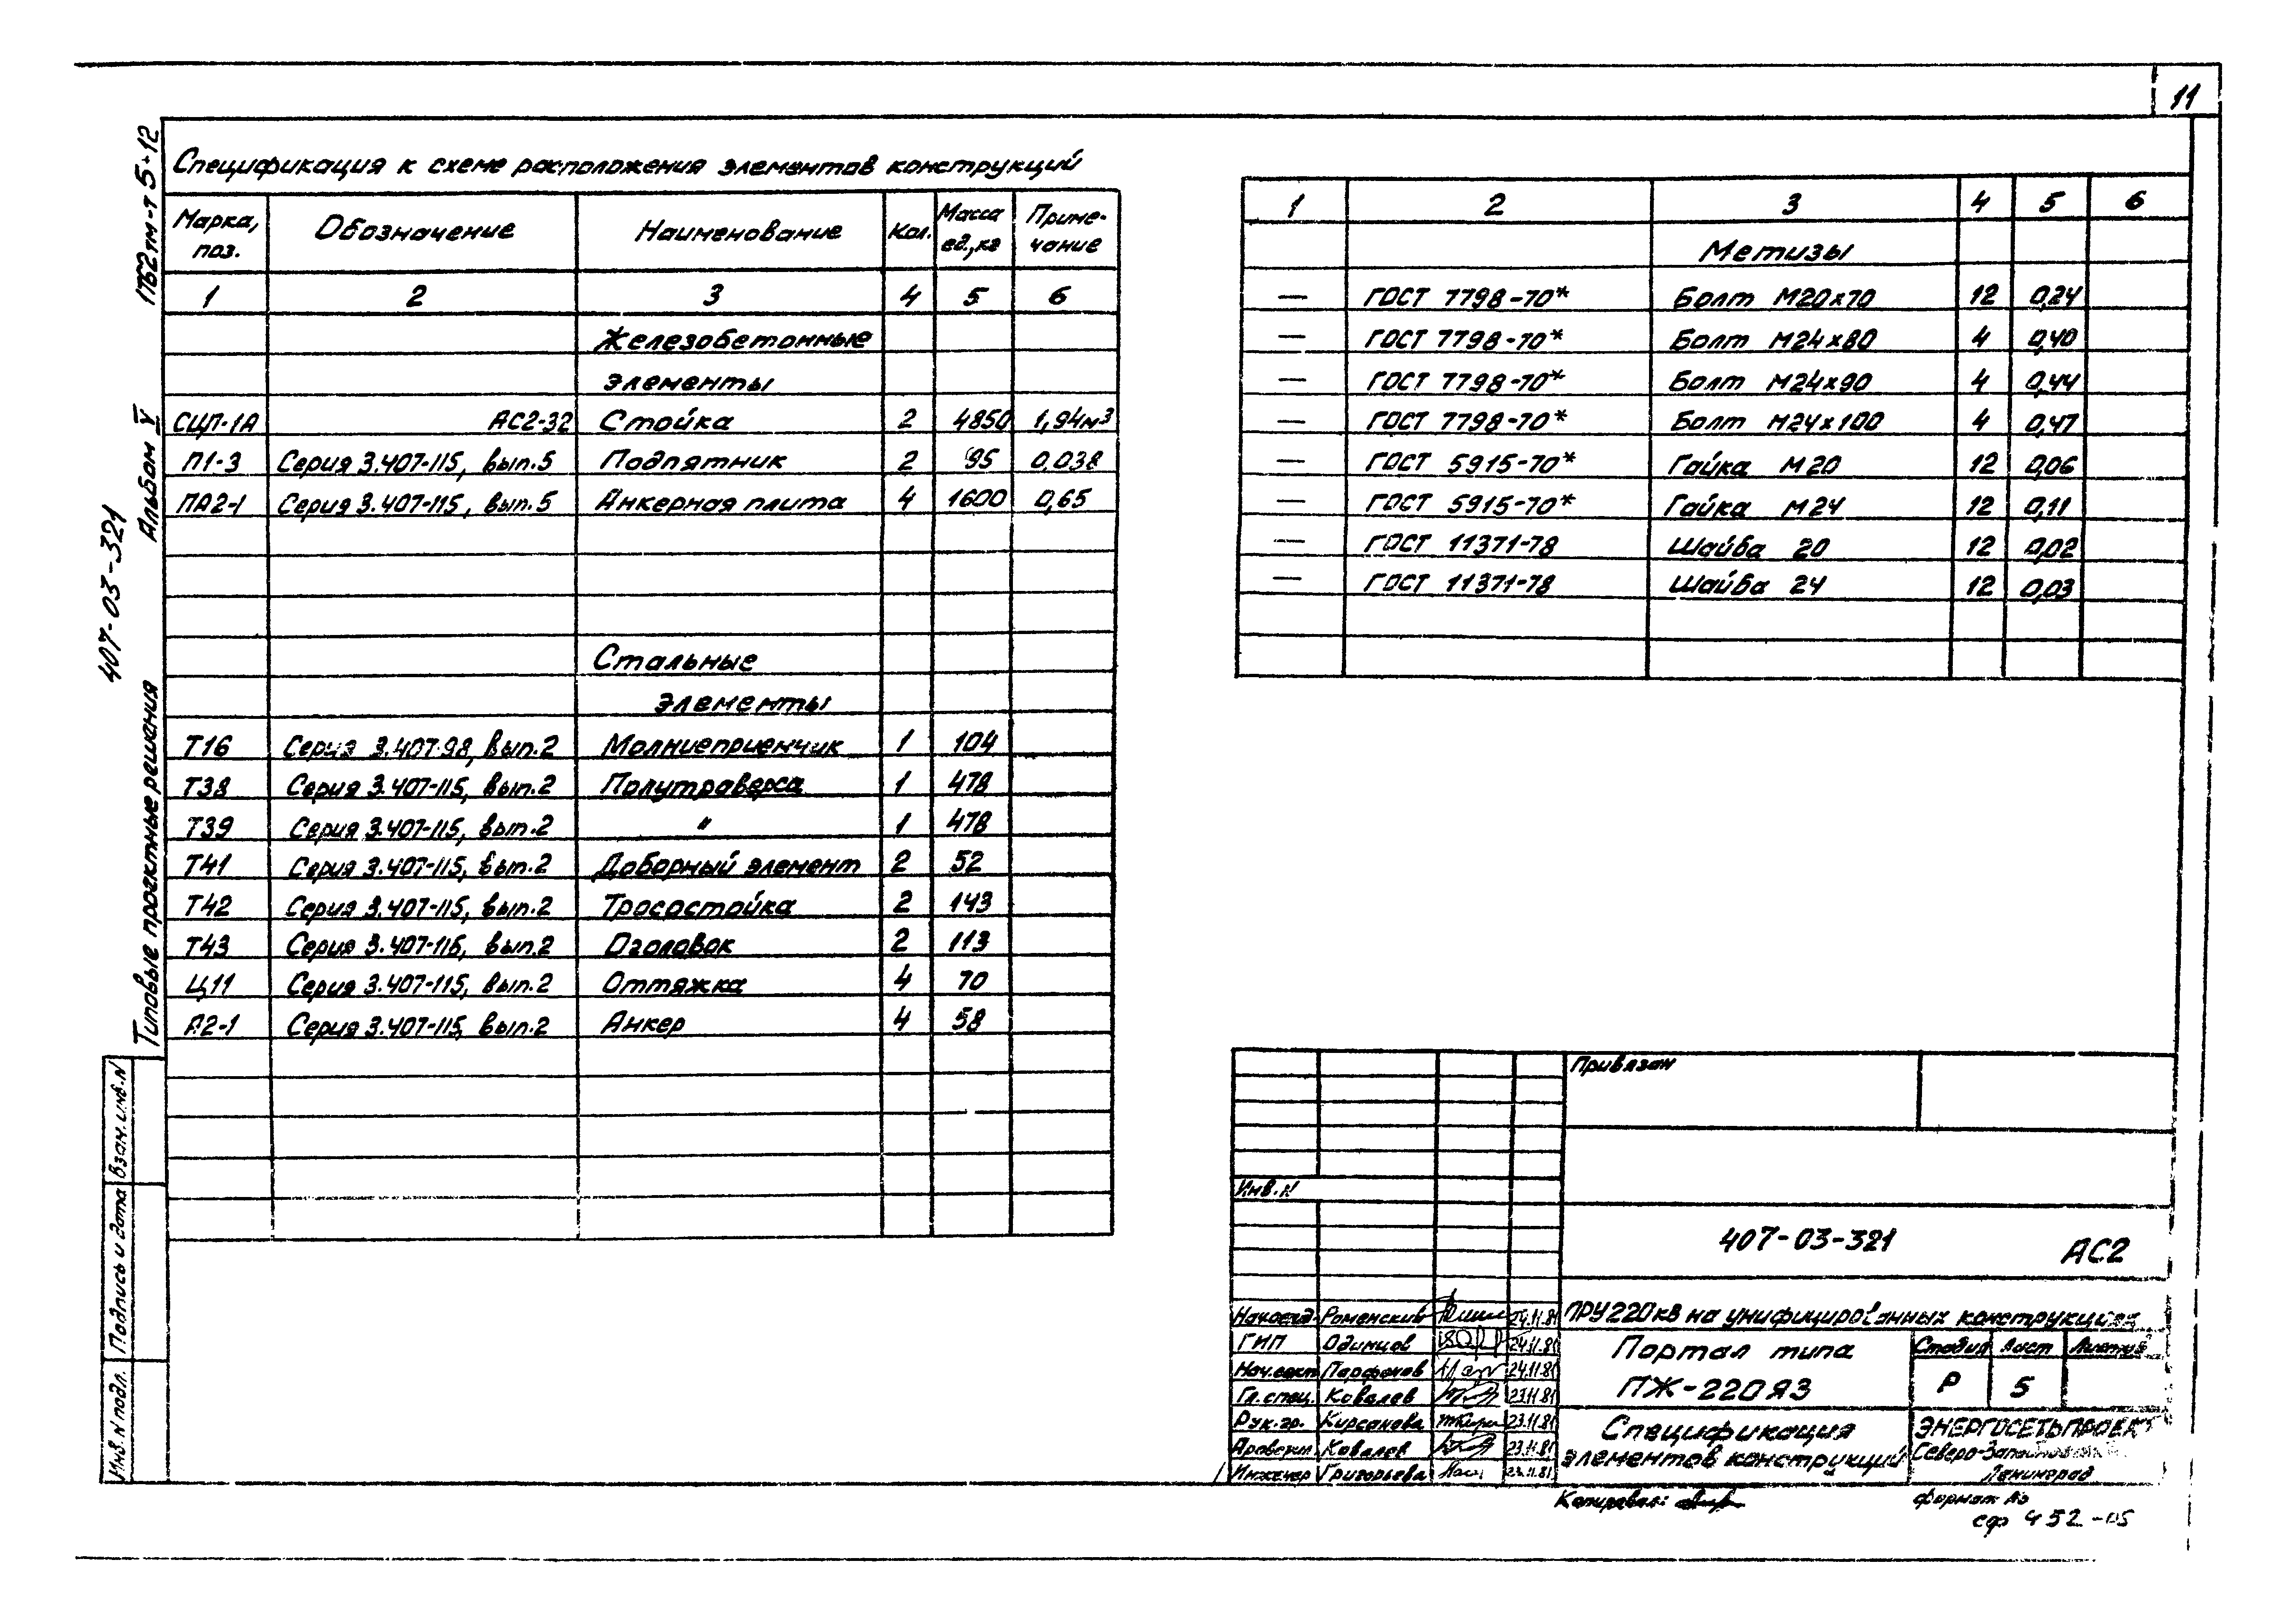 11
1762тм-т 5-12
Альбом V
407-03-321
Типовые проектные решения
Взам. инв. N
Подпись и дата
Инв. N подл.
Спецификация к схеме расположения элементов конструкций
Марка, поз. Обозначение Наименование Кол. Масса ед., кг Приме-чание
1 2 3 4 5 6
Железобетонные
элементы
СЦП-1А АС2-32 Стойка 2 4850 1,94м³
П1-3 Серия 3.407-115, вып.5 Подпятник 2 95 0,038
ПА2-1 Серия 3.407-115, вып.5 Анкерная плита 4 1600 0,65
Стальные
элементы
Т16 Серия 3.407-98, вып.2 Молниеприемчик 1 104
Т38 Серия 3.407-115, вып.2 Полутраверса 1 478
Т39 Серия 3.407-115, вып.2 " 1 478
Т41 Серия 3.407-115, вып.2 Доборный элемент 2 52
Т42 Серия 3.407-115, вып.2 Тросостойка 2 143
Т43 Серия 3.407-115, вып.2 Оголовок 2 113
Ц11 Серия 3.407-115, вып.2 Оттяжка 4 70
А2-1 Серия 3.407-115, вып.2 Анкер 4 58
1 2 3 4 5 6
Метизы
— ГОСТ 7798-70* Болт М20х70 12 0,24
— ГОСТ 7798-70* Болт М24х80 4 0,40
— ГОСТ 7798-70* Болт М24х90 4 0,44
— ГОСТ 7798-70* Болт М24х100 4 0,47
— ГОСТ 5915-70* Гайка М20 12 0,06
— ГОСТ 5915-70* Гайка М24 12 0,11
— ГОСТ 11371-78 Шайба 20 12 0,02
— ГОСТ 11371-78 Шайба 24 12 0,03
Привязан
Инв. N
407-03-321 АС2
Нач.отд. Роменский 24.11.81
ГИП Одинцов 24.11.81
Нач.сект. Парфенов 24.11.81
Гл. спец. Ковалев 23.11.81
Рук. гр. Кирсанова 23.11.81
Проверил Ковалев 23.11.81
Инженер Григорьева 23.11.81
ПРУ 220кВ на унифицированных конструкциях
Портал типа
ПЖ-220Я3
Стадия Лист Листов
Р 5
Спецификация
элементов конструкций
ЭНЕРГОСЕТЬПРОЕКТ
Северо-Западное
Ленинград
Копировал:
формат А3
сф 452-05